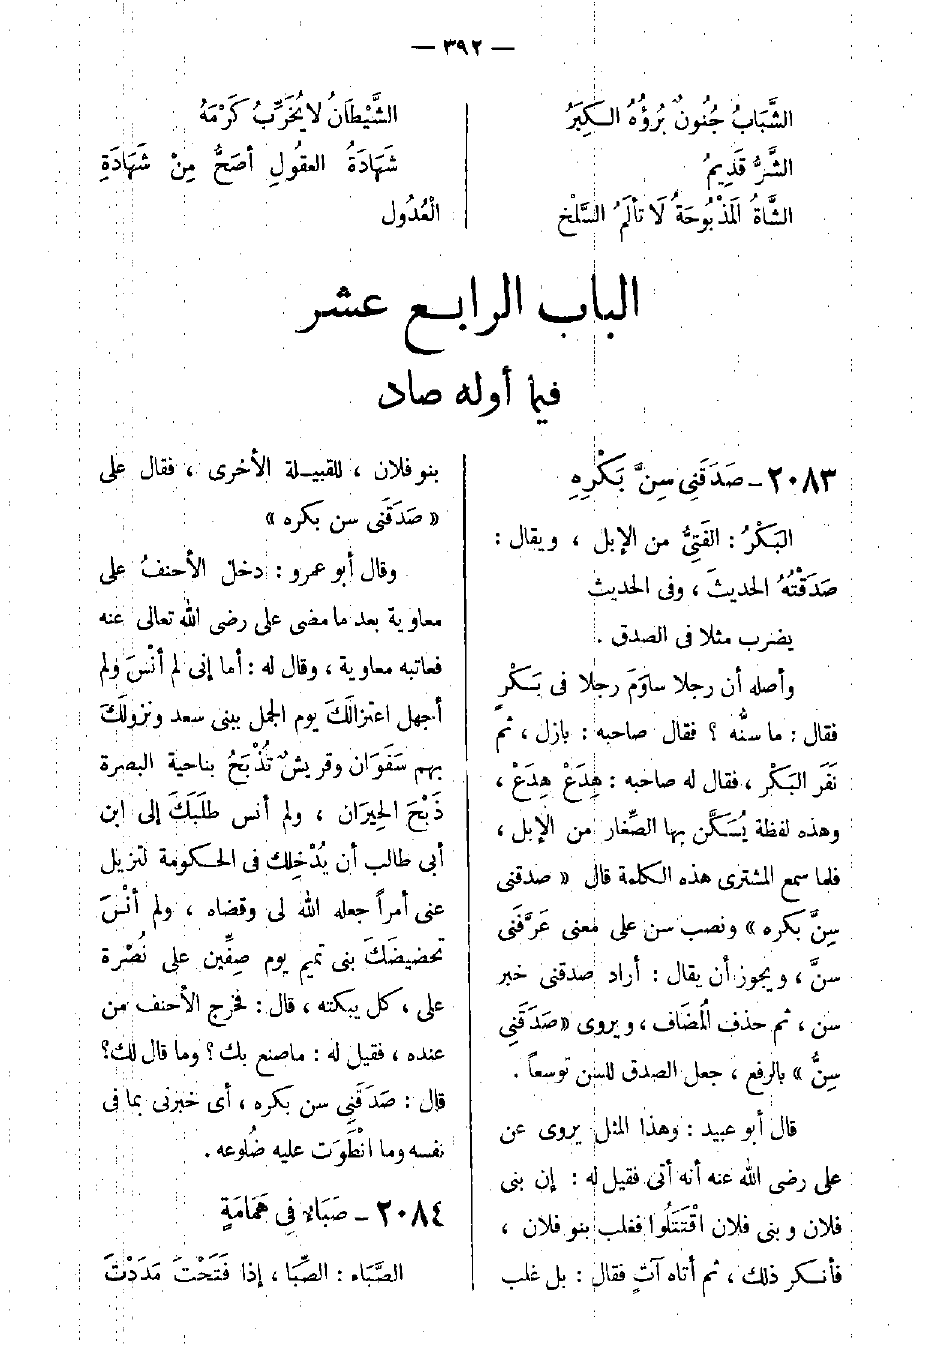 — ٣٩٢ —
الشَّبَابُ جُنُونٌ بُرْؤُهُ الكِبَرُ
الشَّرُّ قَدِيمٌ
الشَّاةُ المَذْبُوحَةُ لَا تَألَمُ السَّلْخَ
الشَّيْطَانُ لا يُخَرِّبُ كَرْمَهُ
شَهَادَةُ العقُولِ أصَحُّ مِنْ شَهَادَةِ
الْعُدُول
الباب الرابع عشر
فيما أوله صاد
٢٠٨٣ ـ صَدَقَنِي سِنَّ بَكْرِهِ
البَكْرُ : الفَتِيُّ من الإبل ، ويقال :
صَدَقْتُهُ الحديثَ ، وفى الحديث
يضرب مثلا فى الصدق .
وأصله أن رجلا ساوَمَ رجلا فى بَكْرٍ
فقال : ما سنُّه ؟ فقال صاحبه : بازل ، ثم
نَفَر البَكْر ، فقال له صاحبه : هِدَعْ هِدَعْ ،
وهذه لفظة يُسَكَّن بها الصِّغار من الإبل ،
فلما سمع المشترى هذه الكلمة قال « صدقنى
سِنَّ بكره » ونصب سن على معنى عَرَّفَنى
سنَّ ، ويجوز أن يقال : أراد صدقنى خبر
سن ، ثم حذف المُضَاف ، ويروى « صَدَقَنِي
سِنُّ » بالرفع ، جعل الصدق للسن توسعاً .
قال أبو عبيد : وهذا المثل يروى عن
على رضى الله عنه أنه أتى فقيل له : إن بنى
فلان وبنى فلان اقْتَتَلُوا فغلب بنو فلان ،
فأنكر ذلك ، ثم أتاه آتٍ فقال : بل غلب
بنو فلان ، للقبيلة الأخرى ، فقال على
« صَدَقَنى سن بكره »
وقال أبو عمرو : دخل الأحنفُ على
معاوية بعد ما مضى على رضى الله تعالى عنه
فعاتبه معاوية ، وقال له : أما إنى لم أنْسَ ولم
أجهل اعتزالَكَ يوم الجمل ببنى سعد ونزولَكَ
بهم سَفَوَان وقريشٌ تُذْبَحُ بناحية البصرة
ذَبْحَ الحِيرَان ، ولم أنس طَلَبَكَ إلى ابن
أبى طالب أن يُدْخِلك فى الحكومة لتزيل
عنى أمراً جعله الله لى وقضاه ، ولم أنْسَ
تحضيضَكَ بنى تميم يوم صِفِّين على نُصْرة
على ، كل يبكته ، قال : فخرج الأحنف من
عنده ، فقيل له : ماصنع بك ؟ وما قال لك؟
قال : صَدَقَنِي سن بكره ، أى خبرنى بما فى
نفسه وما انْطَوَت عليه ضُلوعه .
٢٠٨٤ ـ صَبَاءٌ فِي هَمَامَةٍ
الصَّبَاء : الصِّبَا ، إذا فَتَحْتَ مَدَدْتَ